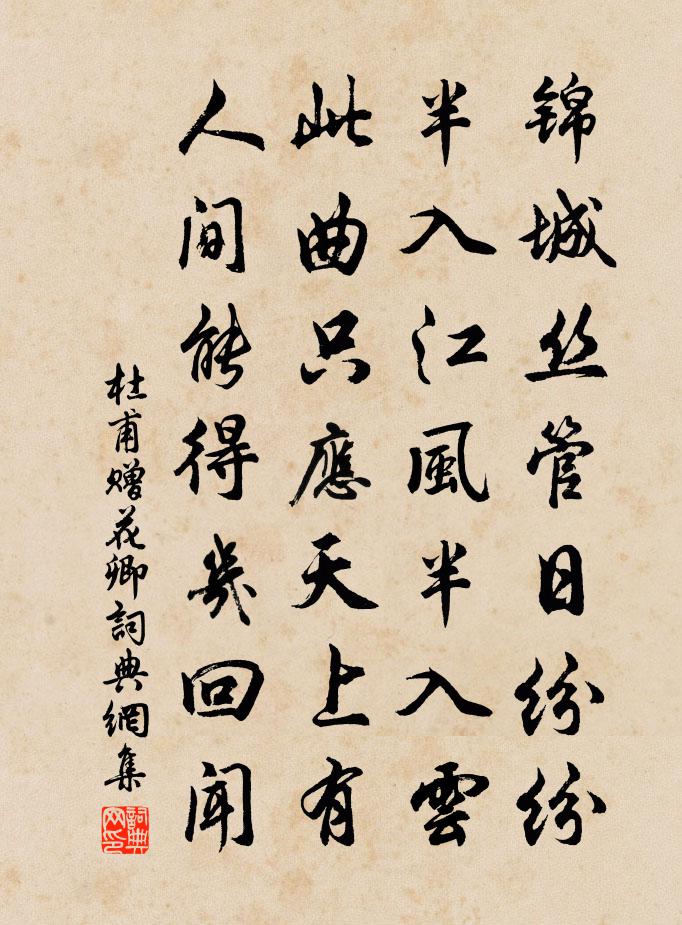 锦城丝管日纷纷
半入江風半入雲
此曲只應天上有
人间能得幾回闻
杜甫赠花卿詞典網集
詞典
网印